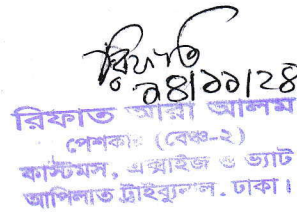 রিফাত
০৪/১১/২৪
রিফাত আরা আলম
পেশকার (বেঞ্চ-২)
কাস্টমস, এক্সাইজ ও ভ্যাট
আপিলাত ট্রাইব্যুনাল, ঢাকা।